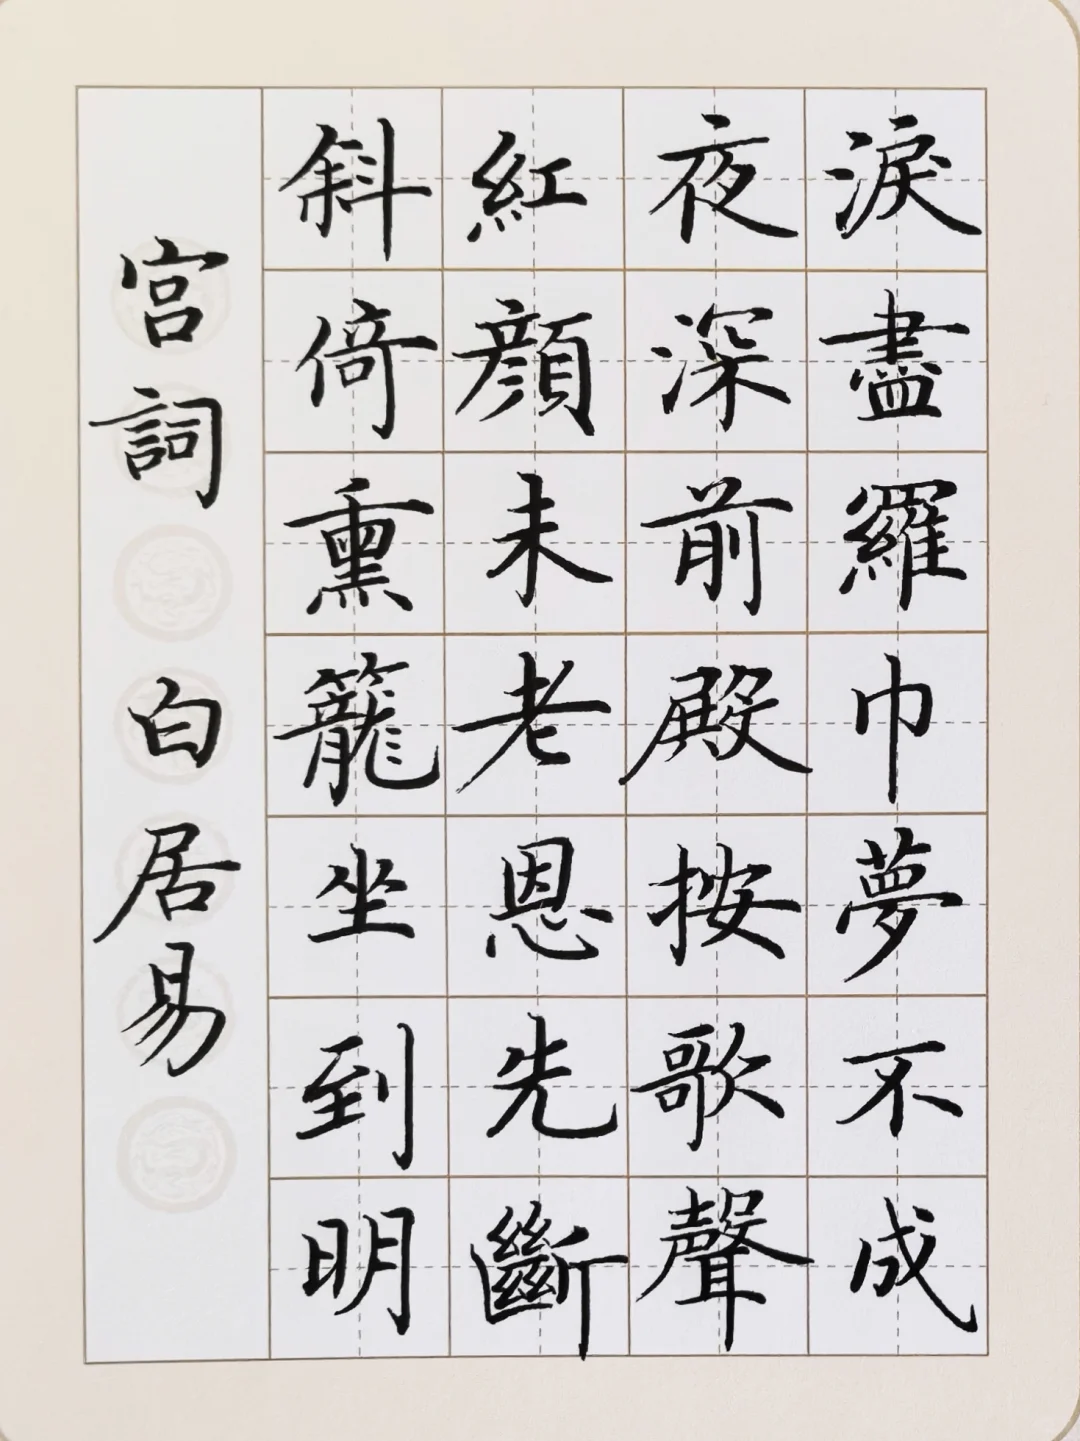 淚盡羅巾夢不成
夜深前殿按歌聲
紅顏未老恩先斷
斜倚熏籠坐到明
宮詞 白居易